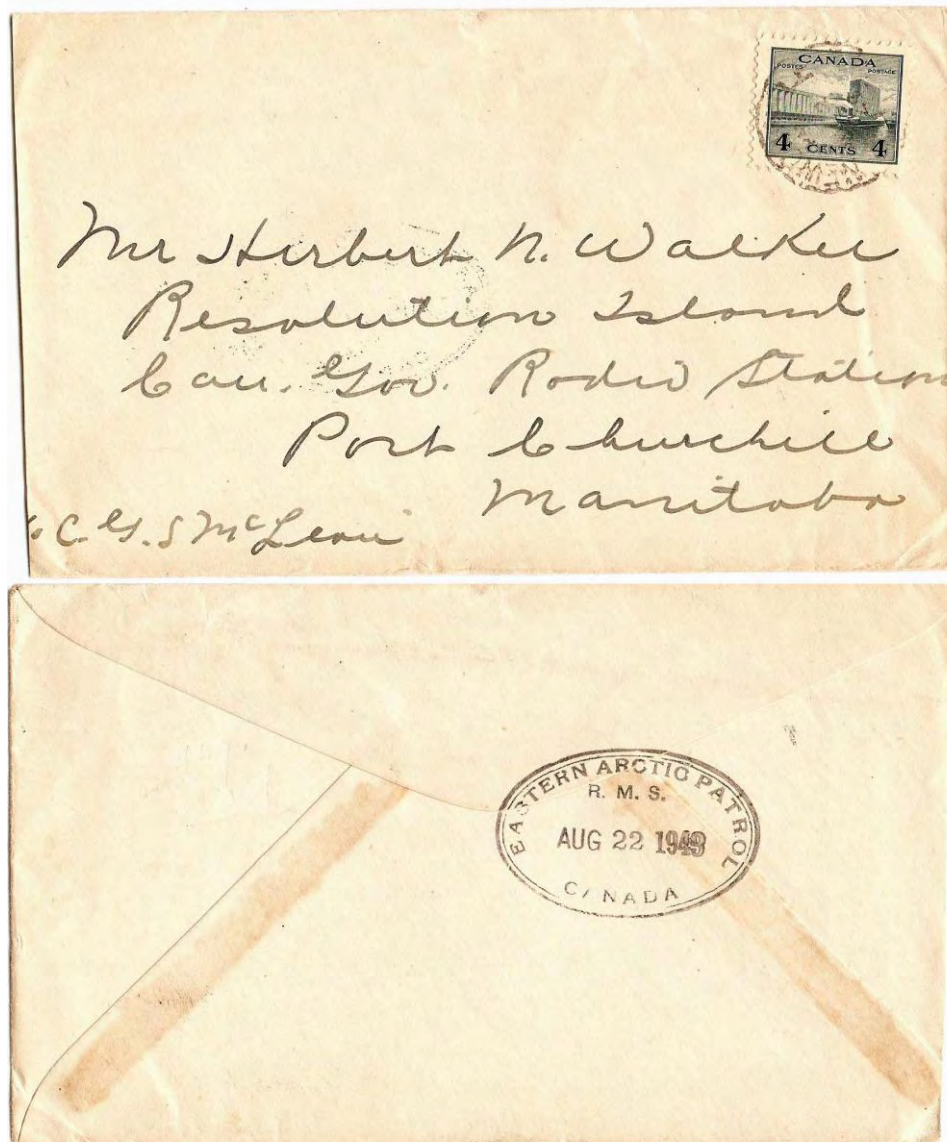 CANADA
POSTES POSTAGE
4 CENTS 4
Mr Herbert N. Walker
Resolution Island
Can. Gov. Radio Station
Port Churchill
Manitoba
C.G.S McLean
EASTERN ARCTIC PATROL
R. M. S.
AUG 22 1943
CANADA